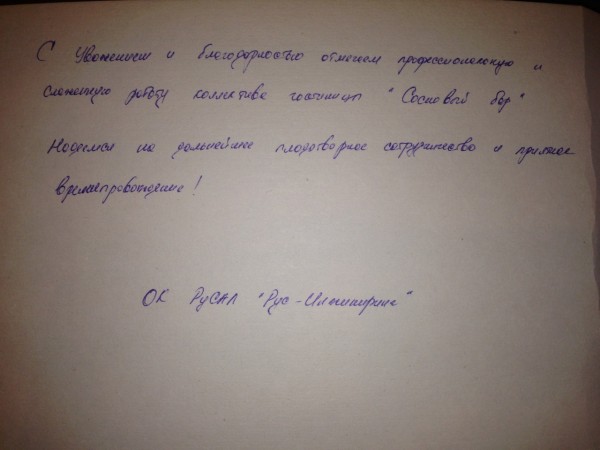 С Уважением и благодарностью отмечаем профессиональную и
слаженную работу коллектива гостиницы "Сосновый бор"
Надеемся на дальнейшее плодотворное сотрудничество и приятное
времяпровождение!
ОК РУСАЛ "Рус-Инжиниринг"